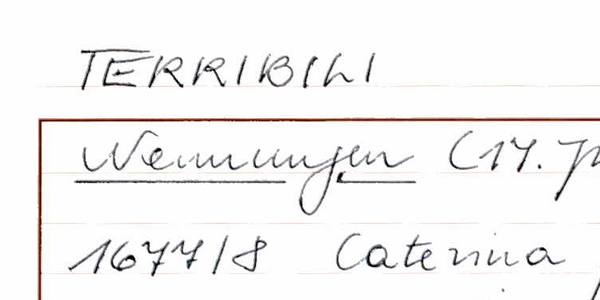 TERRIBILI
Nennungen (17. J
1677/8 Caterina